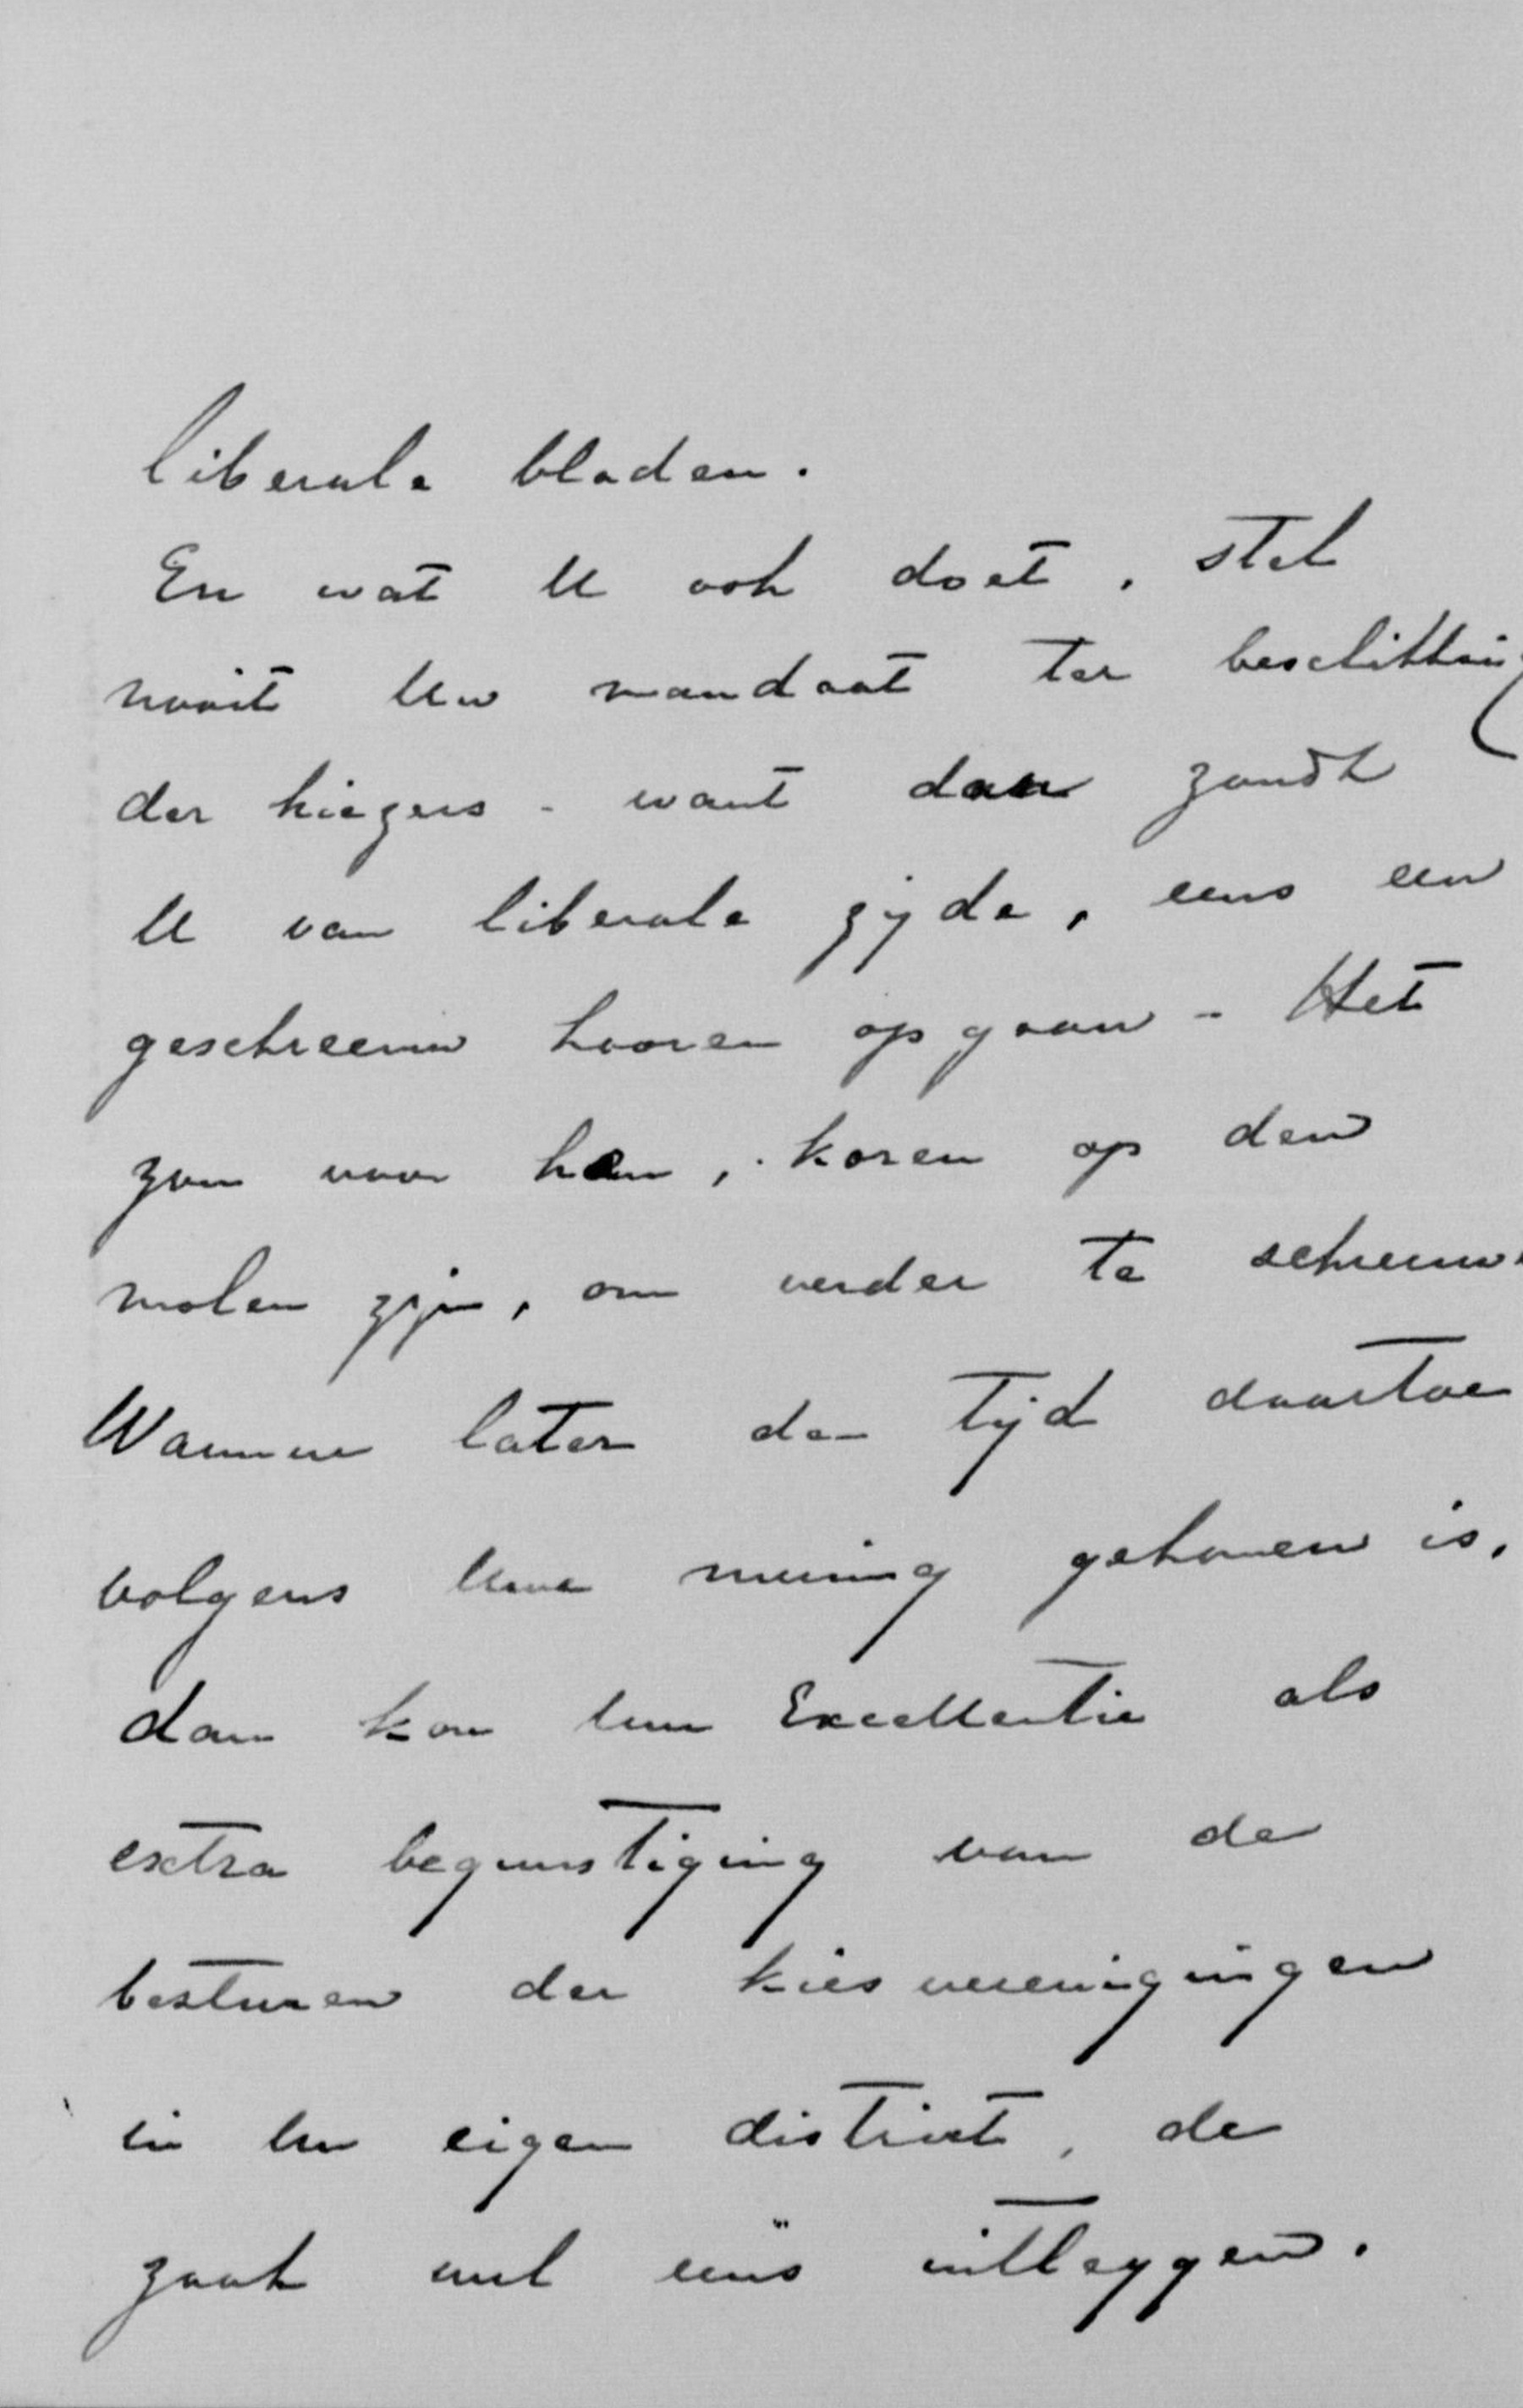 liberale bladen.
En wat U ook doet, stel
nooit Uw mandaat ter beschikking
der kiezers - want dan zoudt
U van liberale zijde, eens een
geschreeuw hooren opgaan - Het
zou voor hen, koren op den
molen zijn, om verder te schreeuw
Wanneer later de tijd daartoe
volgens Uwe meening gekomen is,
dan kon Uwe Excellentie als
extra begunstiging van de
besturen der kiesvereenigingen
in Uw eigen district, de
zaak wel eens uitleggen.